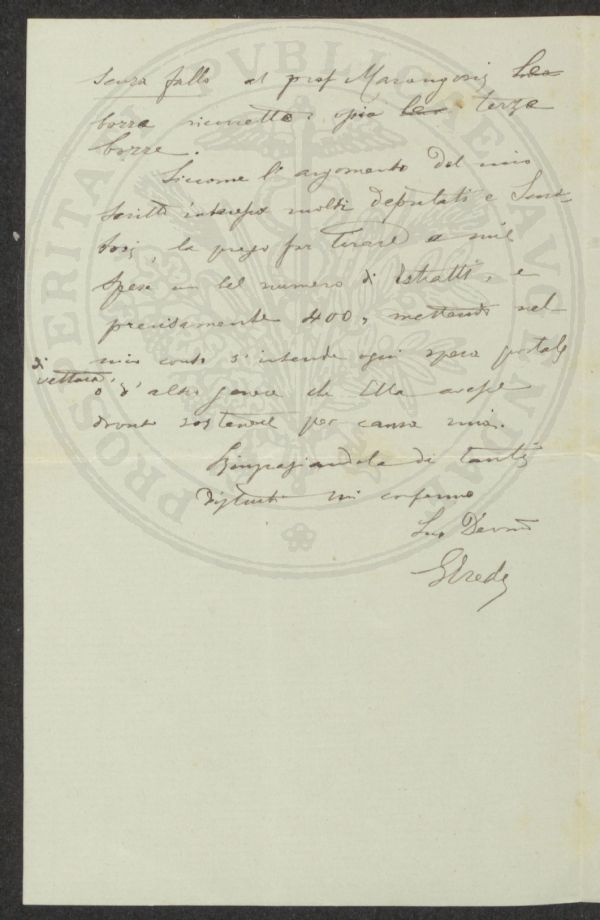 senza fallo al prof Marangoni
bozze corrette
bozze.
Siccome l'argomento del mio
scritto interessa molti deputati e Sena-
tori, la prego far tirare a mie
spese un bel numero di estratti, e
precisamente 400, mettendo nel
mio conto s'intende ogni spesa postale
di vettura
o d'altro genere che Ella avesse
dovuto sostenere per causa mia.
Ringraziandola di tanti
disturbi mi confermo
Suo Devmo
PROSPERITATI PVBLICAE